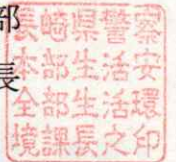 部
長
長崎県警察
本部生活安
全部生活環
境課長之印